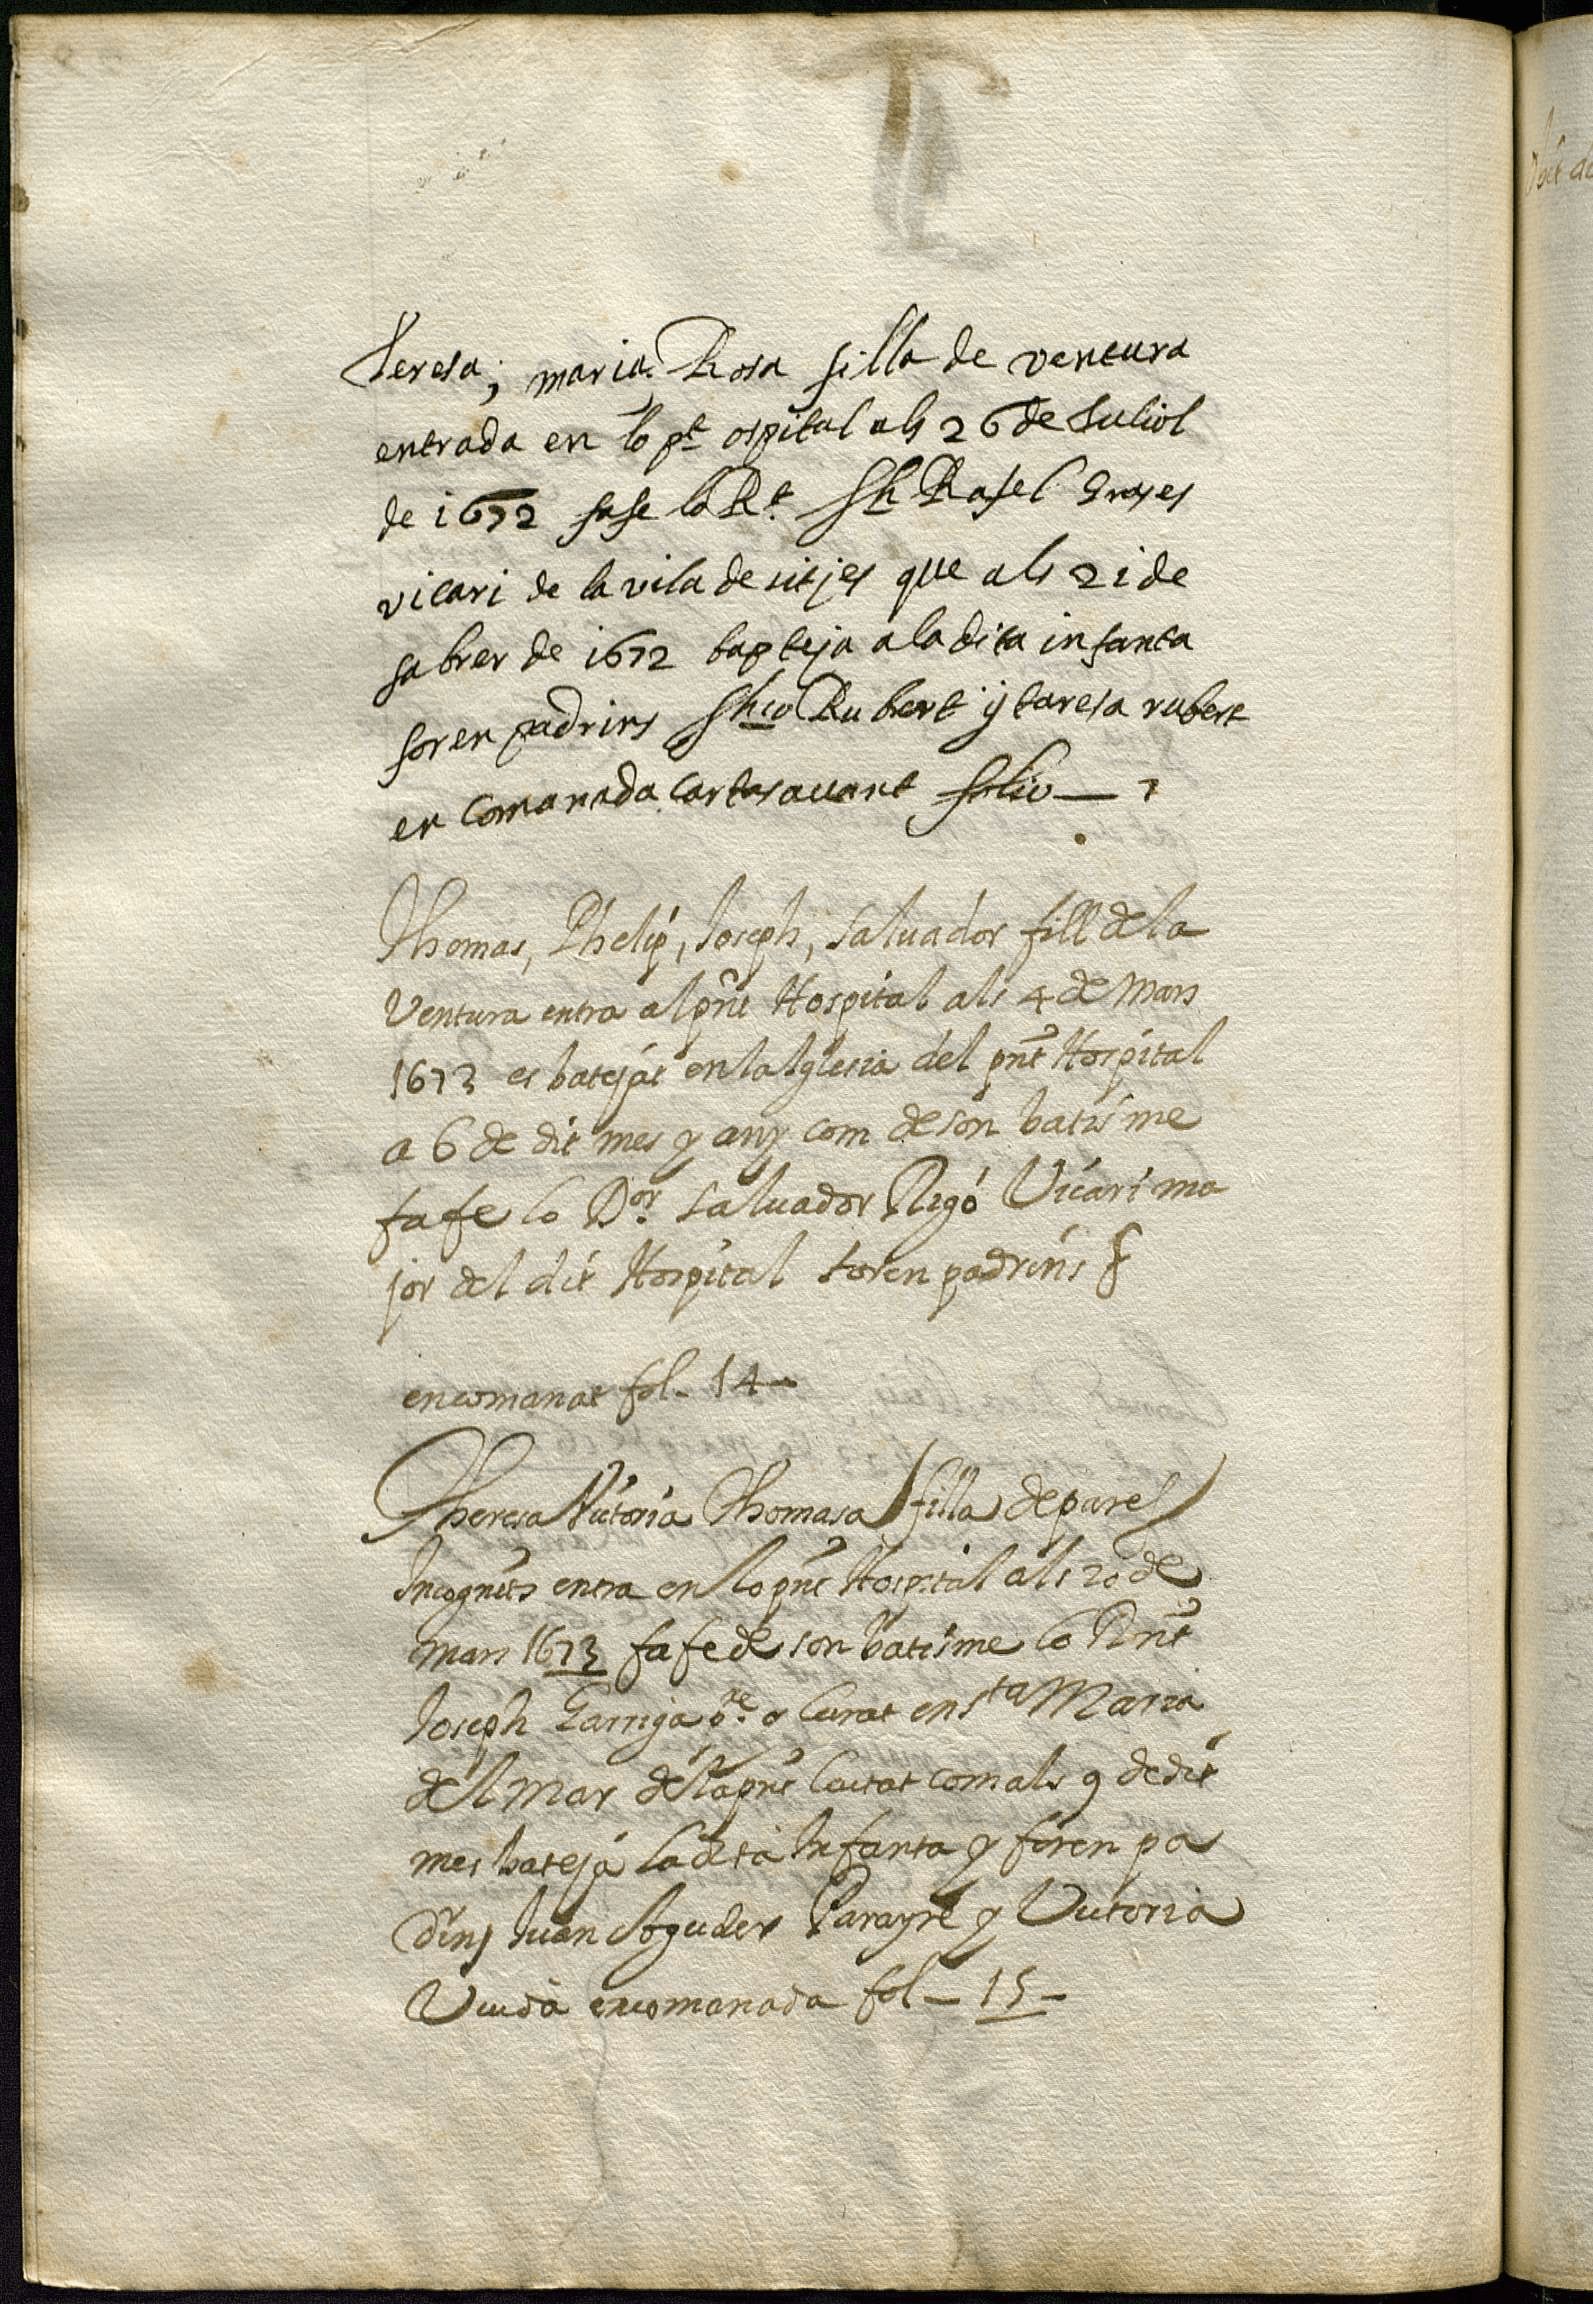 T
Teresa; maria Rosa filla de ventura
entrada en lo pt ospital als 26 de Juliol
de 1672 fa fe lo Rt Sr Rafel
vicari de la vila de sitjes que als 21 de
fabrer de 1672 bapteja a la dita infanta
foren padrins Rubert y taresa rubert
en comanada cartas auant folio — 7
Thomas, Phelip, Joseph, Saluador fill de la
Ventura entra al pnt Hospital als 4 de Mars
1673 es batejat en la Iglesia del pnt Hospital
a 6 de dit mes y any com de son batisme
fa fe lo Dor. Saluador Rigó Vicari ma
jor del dit Hospital foren padrins
encomanat fol - 14 -
Theresa Victoria Thomasa filla de pares
Incognits entra en lo pnt Hospital als 20 de
mars 1673 fa fe de son batisme lo Rnt
Joseph Garriga pre. y Curat en Sta Maria
del Mar de la pnt Ciutat com als 9 de dit
mes batejá la dita Infanta y foren pa
drins Juan Aguder Parayre y Victoria
Viuda encomanada fol - 15 -